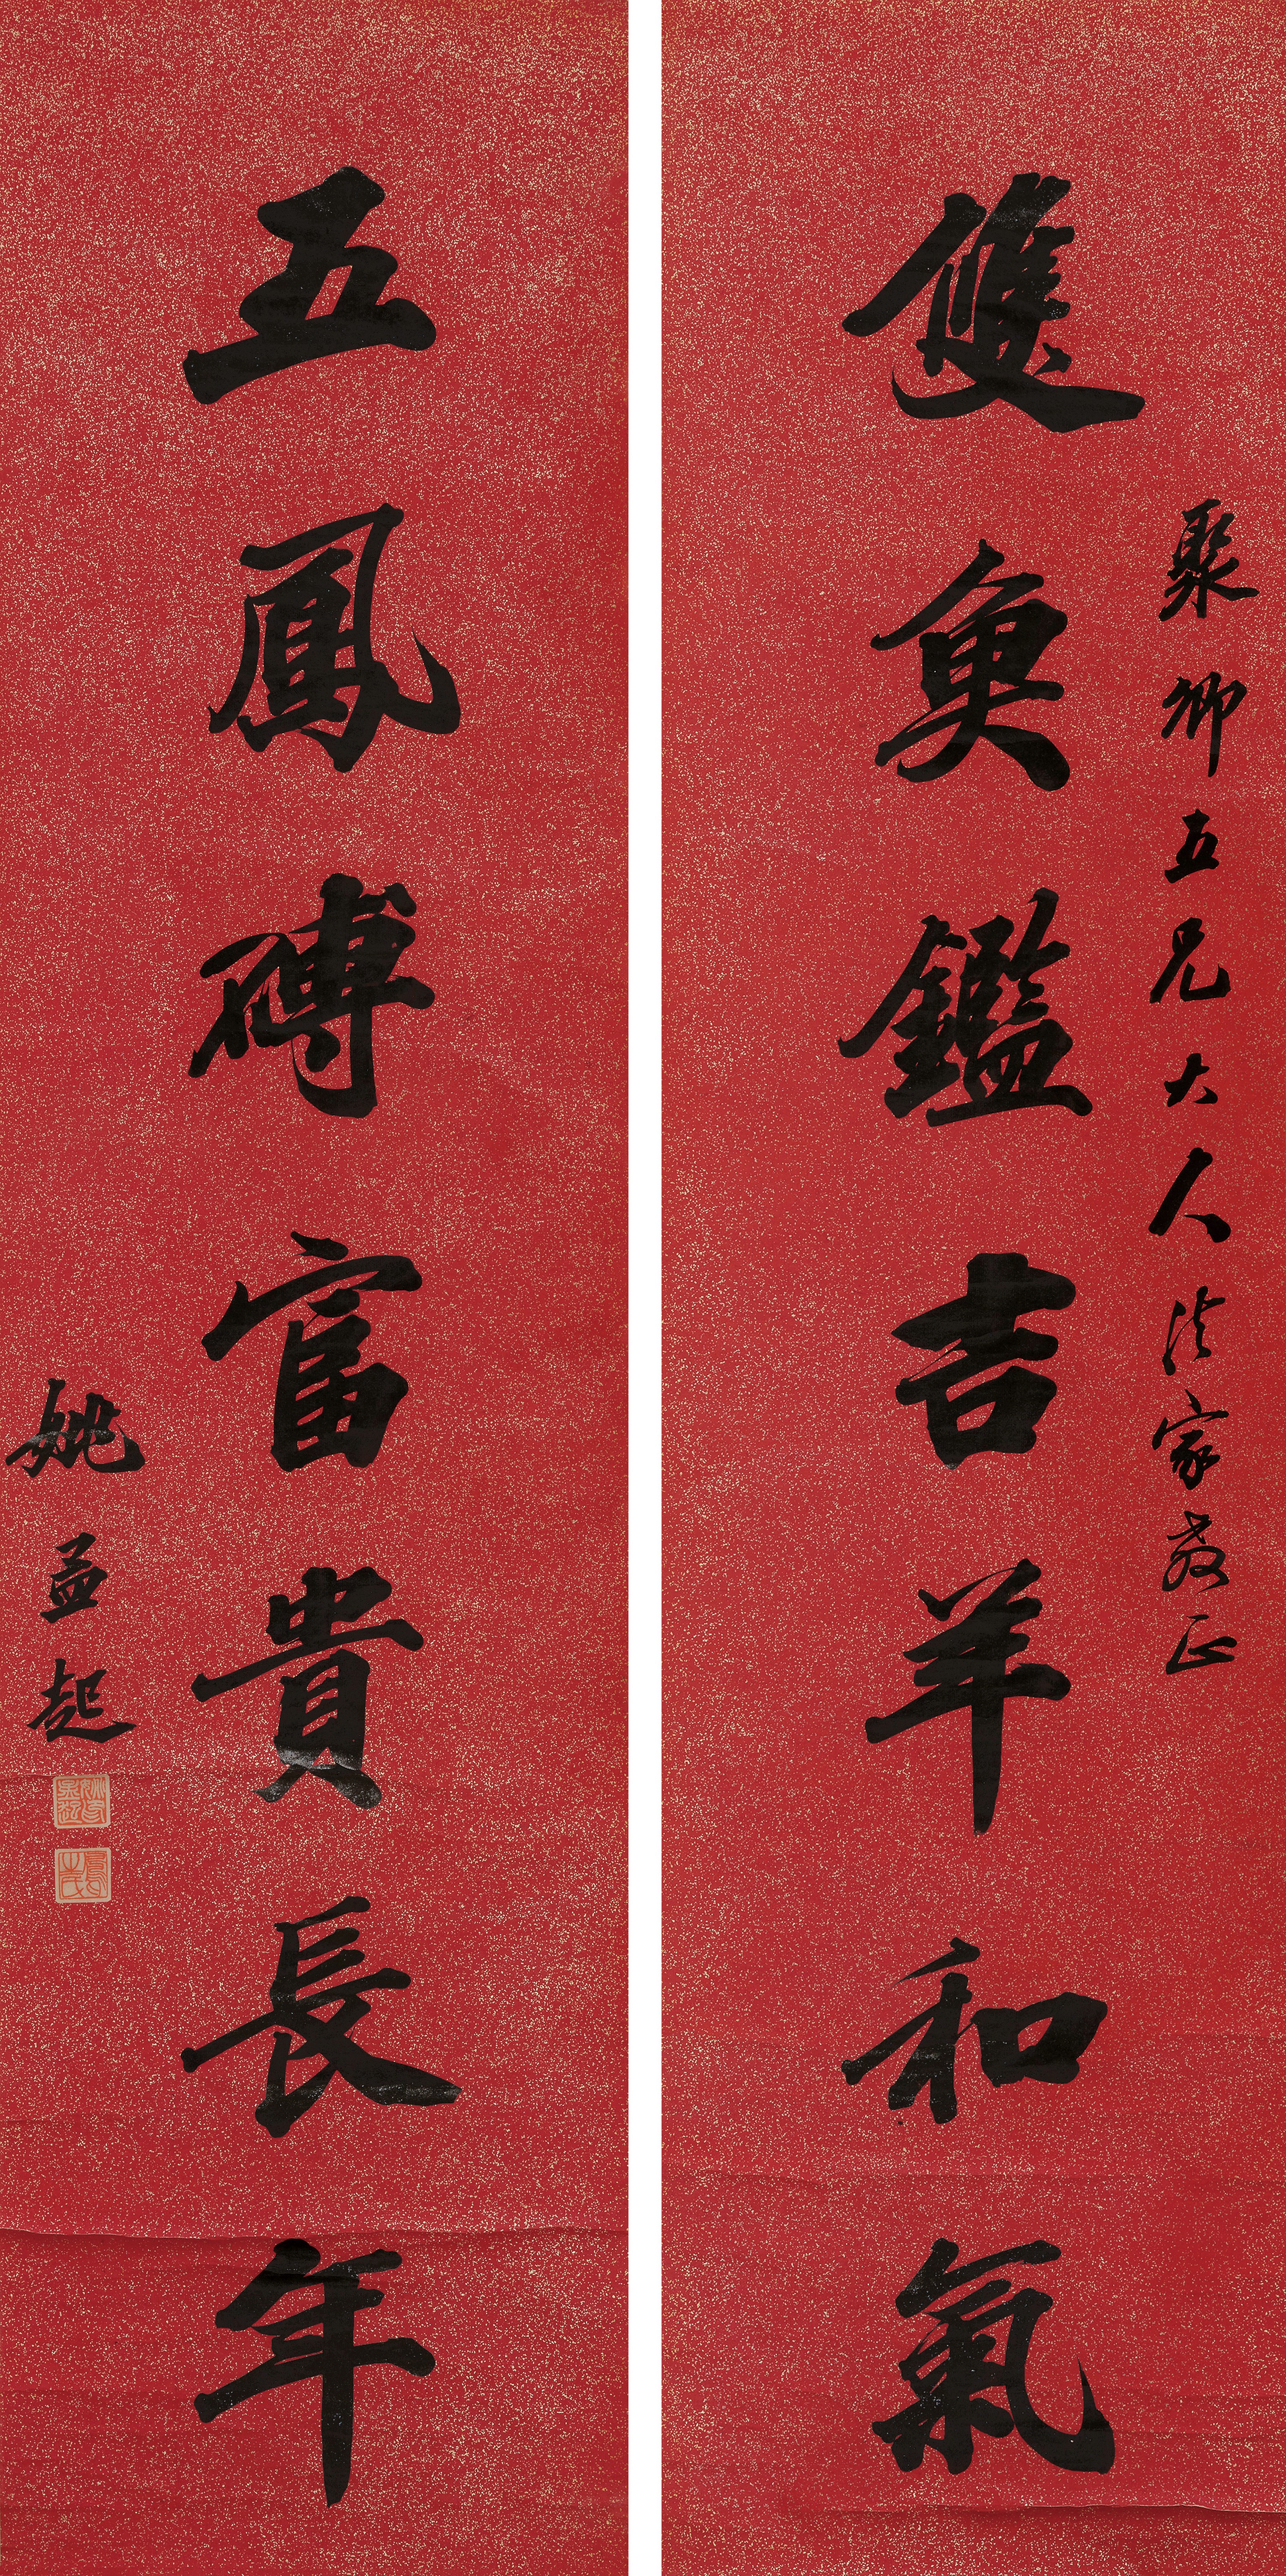 聚卿五兄大人法家教正
雙魚鑑吉羊和氣
五鳳磚富貴長年
姚孟起
姚孟起
鳳生